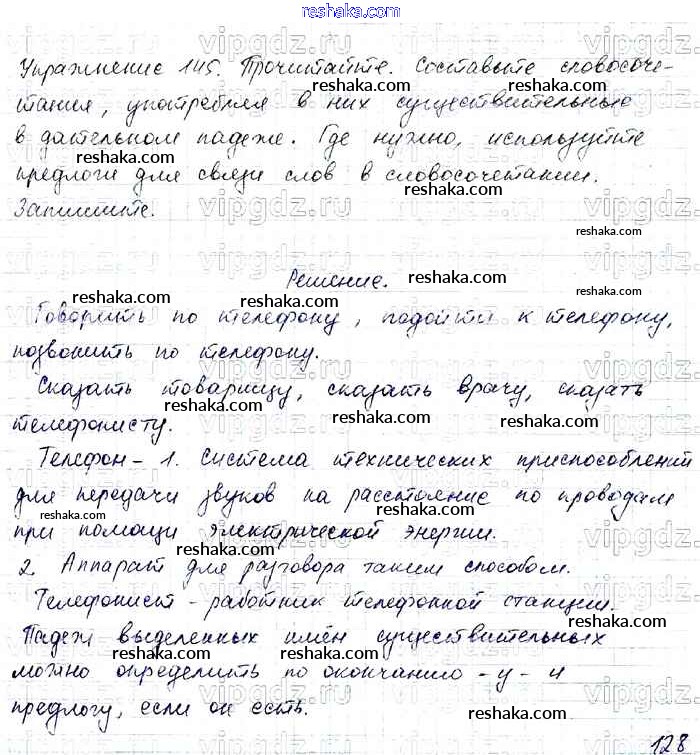 reshaka.com
Упражнение 145. Прочитайте. Составьте словосоче-
тания, употребляя в них существительные
в дательном падеже. Где нужно, используйте
предлоги для связи слов в словосочетании.
Запишите.
Решение.
Говорить по телефону, подойти к телефону,
позвонить по телефону.
Сказать товарищу, сказать врачу, сказать
телефонисту.
Телефон - 1. Система технических приспособлений
для передачи звуков на расстояние по проводам
при помощи электрической энергии.
2. Аппарат для разговора таким способом.
Телефонист - работник телефонной станции.
Падеж выделенных имён существительных
можно определить по окончанию -у- и
предлогу, если он есть.
128